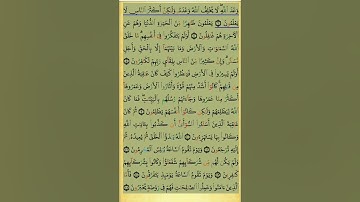 وَعْدَ ٱللَّهِ لَا يُخْلِفُ ٱللَّهُ وَعْدَهُۥ وَلَٰكِنَّ أَكْثَرَ ٱلنَّاسِ لَا
يَعْلَمُونَ ۝ يَعْلَمُونَ ظَٰهِرًا مِّنَ ٱلْحَيَوٰةِ ٱلدُّنْيَا وَهُمْ عَنِ
ٱلْءَاخِرَةِ هُمْ غَٰفِلُونَ ۝ أَوَلَمْ يَتَفَكَّرُوا۟ فِىٓ أَنفُسِهِم مَّا خَلَقَ
ٱللَّهُ ٱلسَّمَٰوَٰتِ وَٱلْأَرْضَ وَمَا بَيْنَهُمَآ إِلَّا بِٱلْحَقِّ وَأَجَلٍ
مُّسَمًّى وَإِنَّ كَثِيرًا مِّنَ ٱلنَّاسِ بِلِقَآئِ رَبِّهِمْ لَكَٰفِرُونَ ۝
أَوَلَمْ يَسِيرُوا۟ فِى ٱلْأَرْضِ فَيَنظُرُوا۟ كَيْفَ كَانَ عَٰقِبَةُ ٱلَّذِينَ
مِن قَبْلِهِمْ كَانُوٓا۟ أَشَدَّ مِنْهُمْ قُوَّةً وَأَثَارُوا۟ ٱلْأَرْضَ وَعَمَرُوهَآ
أَكْثَرَ مِمَّا عَمَرُوهَا وَجَآءَتْهُمْ رُسُلُهُم بِٱلْبَيِّنَٰتِ فَمَا كَانَ
ٱللَّهُ لِيَظْلِمَهُمْ وَلَٰكِن كَانُوٓا۟ أَنفُسَهُمْ يَظْلِمُونَ ۝ ثُمَّ كَانَ
عَٰقِبَةَ ٱلَّذِينَ أَسَٰٓـُٔوا۟ ٱلسُّوٓأَىٰٓ أَن كَذَّبُوا۟ بِـَٔايَٰتِ ٱللَّهِ
وَكَانُوا۟ بِهَا يَسْتَهْزِءُونَ ۝ ٱللَّهُ يَبْدَؤُا۟ ٱلْخَلْقَ ثُمَّ يُعِيدُهُۥ ثُمَّ
إِلَيْهِ تُرْجَعُونَ ۝ وَيَوْمَ تَقُومُ ٱلسَّاعَةُ يُبْلِسُ ٱلْمُجْرِمُونَ ۝
وَلَمْ يَكُن لَّهُم مِّن شُرَكَآئِهِمْ شُفَعَٰٓؤُا۟ وَكَانُوا۟ بِشُرَكَآئِهِمْ
كَٰفِرِينَ ۝ وَيَوْمَ تَقُومُ ٱلسَّاعَةُ يَوْمَئِذٍ يَتَفَرَّقُونَ ۝ فَأَمَّا
ٱلَّذِينَ ءَامَنُوا۟ وَعَمِلُوا۟ ٱلصَّٰلِحَٰتِ فَهُمْ فِى رَوْضَةٍ يُحْبَرُونَ ۝